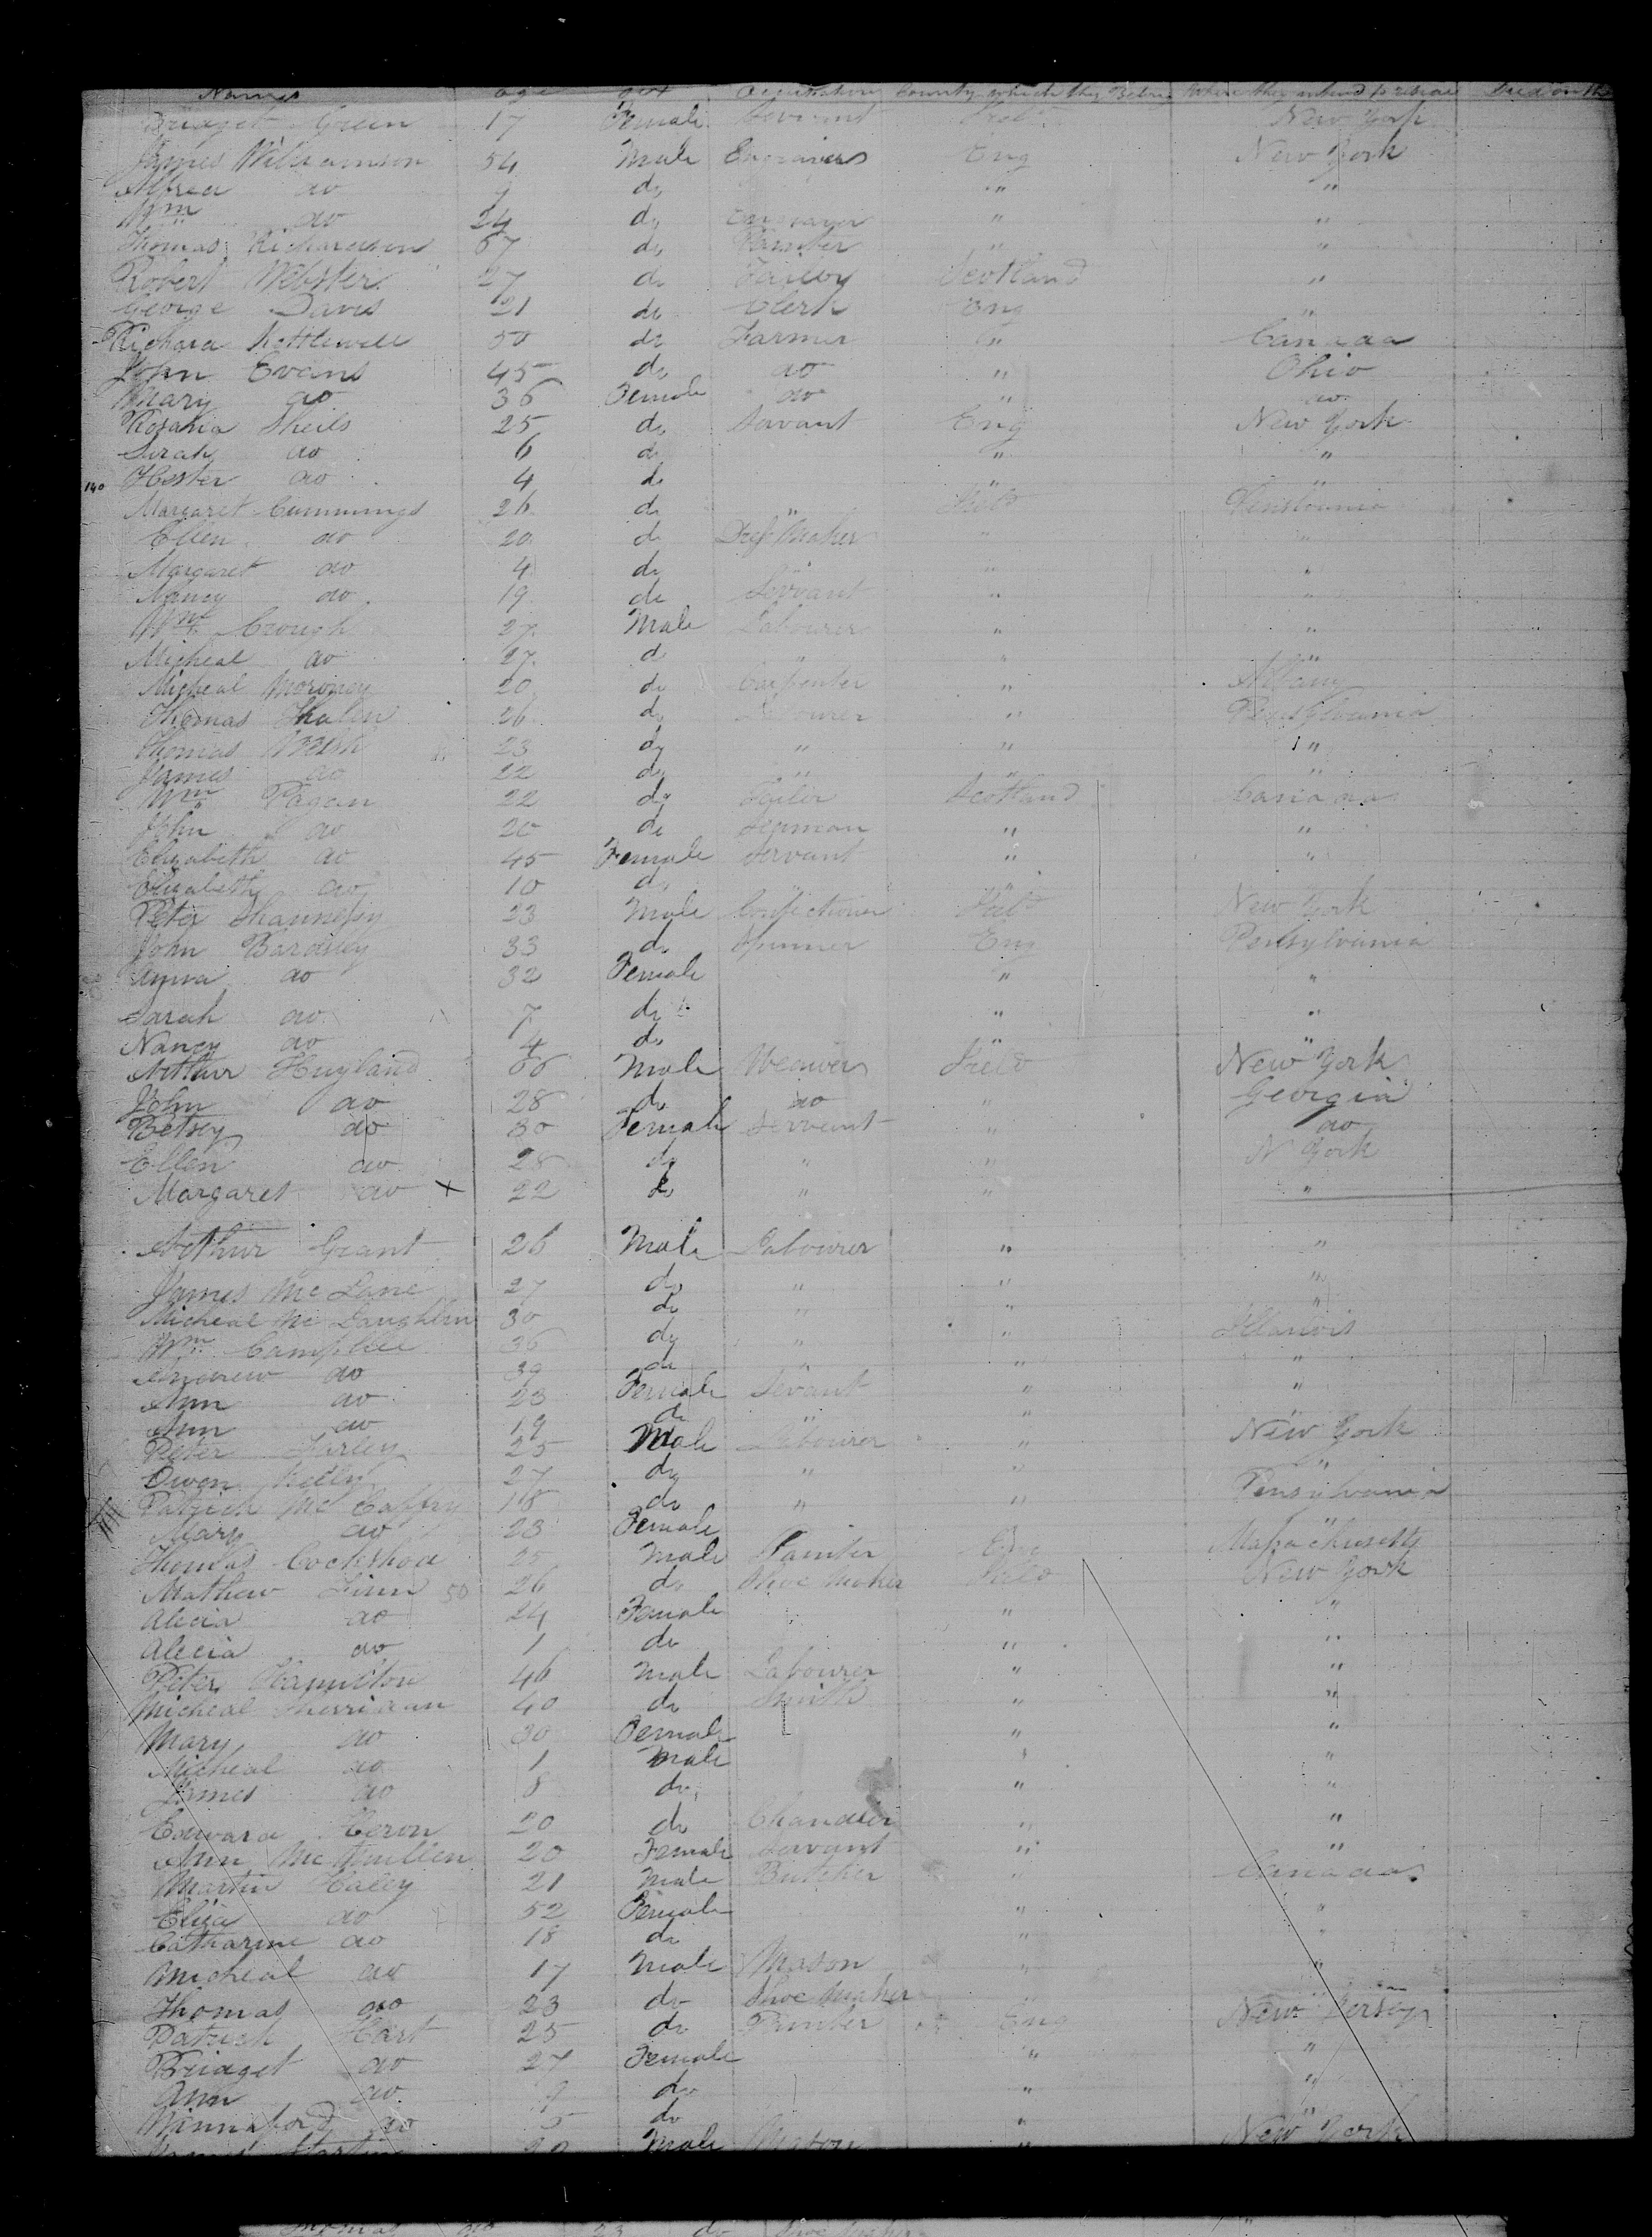 Names age sex Occupation County which they Belong Where they intend to reside Died on the
Bridget Green 17 Female Servant Ireld New York
James Williamson 54 Male Engravers Eng New York
Alfred do 9 do " "
Wm do 24 do Engraver " "
Thomas Richardson 67 do " "
Robert Webster 27 do Tailor Scotland "
George Davis 21 do Clerk Eng "
Richard Kettlewell 50 do Farmer " Canada
John Evans 45 do do " Ohio
Mary do 36 Female do " do
Rosahia Sheils 25 do Servant Eng New York
Sarah do 6 do " "
140 Hester do 4 do " "
Margaret Cummings 26 do " Ireld
Ellen do 20 do Dress Maker " "
Margaret do 4 do " "
Nancy do 19 do Servant " "
Wm Crough 27 Male Labourer " "
Micheal do 27 do " " "
Micheal Moroney 20 do Carpenter " Albany
Thomas 26 do Labourer " Pensylvania
Thomas Walsh 23 do " " "
James do 22 do " " "
Wm Pagan 22 do Tailor Scotland Canada
John do 20 do Seaman " "
Elizabeth do 45 Female Servant " "
Elizabeth do 10 do " "
Peter Shannessy 23 Male Confectioner Ireld New York
John Bardsley 33 do Spinner Eng Pensylvania
Anna do 32 Female " "
Sarah do 7 do " "
Nancy do 4 do " "
Arthur Hughland 66 Male Weaver Ireld New York
John do 28 do do " Georgia
Betsey do 30 Female Servant " do
Ellen do 28 do " " N York
Margaret do x 22 do " " "
Arthur Grant 26 Male Labourer " "
James McLane 27 do " " "
Micheal McLaughlin 30 do " " "
Wm Campbell 36 do " " Illanois
Andrew do 39 do " " "
Ann do 23 Female Sevant " "
Ann do 19 do " " "
Peter Farley 25 Male Labourer " New York
Owen Kelly 27 do " " "
Patrick McCaffry 18 do " " Pensylvania
Mary do 23 Female "
Thomas Cockshod 25 Male Painter Eng Massachusetts
Mathew Finn 50 26 do Shoe Maker Ireld New York
Alecia do 24 Female " "
Alecia do 1 do " "
Peter Hamilton 46 Male Labourer " "
Micheal Sherridann 40 do Smith " "
Mary do 30 Female " "
Micheal do 1 Male " "
James do 8 do " "
Edward Ceron 20 do Chandler " "
Ann McMullen 20 Female Servant " "
Martin Haley 21 Male Butcher " Canada
Eliza do 52 Female " "
Catharine do 18 do " "
Micheal do 17 Male Mason " "
Thomas do 23 do Shoe Maker " "
Patrick Hart 25 do Eng New Jersey
Bridget do 27 Female " "
Ann do do " "
Winnaford do 5 do " "
Male Mason " New York
Thomas do 23 do Shoe Maker